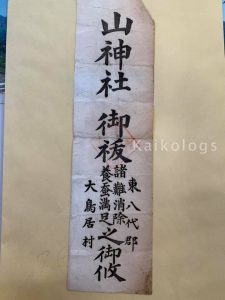 山神社 御祓
諸難消除
養蚕満足
之御攸
東八代郡
大鳥居村
Kaikologs